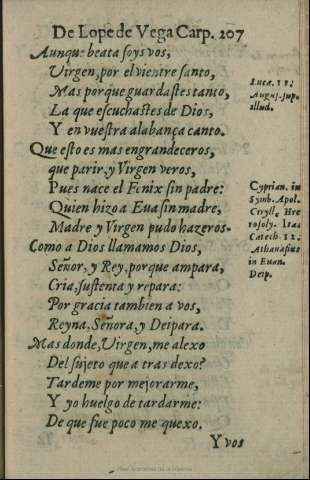 De Lope de Vega Carp. 207
Aunque beata ſoys vos,
Virgen, por el vientre ſanto,
Mas porque guardaſtes tanto,
La que eſcuchaſtes de Dios,
Y en vueſtra alabança canto.
Que eſto es mas engrandeceros,
que parir, y Virgen veros,
Pues nace el Fenix sin padre:
Quien hizo a Eua ſin madre,
Madre y Virgen pudo hazeros.
Como a Dios llamamos Dios,
Señor, y Rey, porque ampara,
Cria, ſuſtenta y repara:
Por gracia tambien a vos,
Reyna, Señora, y Deipara.
Mas donde, Virgen, me alexo
Del ſujeto que a tras dexo?
Tardeme por mejorarme,
Y yo huelgo de tardarme:
De que fue poco me quexo.
Y vos
Lucæ. 11;
Auguſ. ſup.
illud.
Cyprian. in
Symb. Apoſ.
Ciryll. Hie
roſoly. Ita:
Catech. 12:
Athanaſius
in Euan.
Deip.